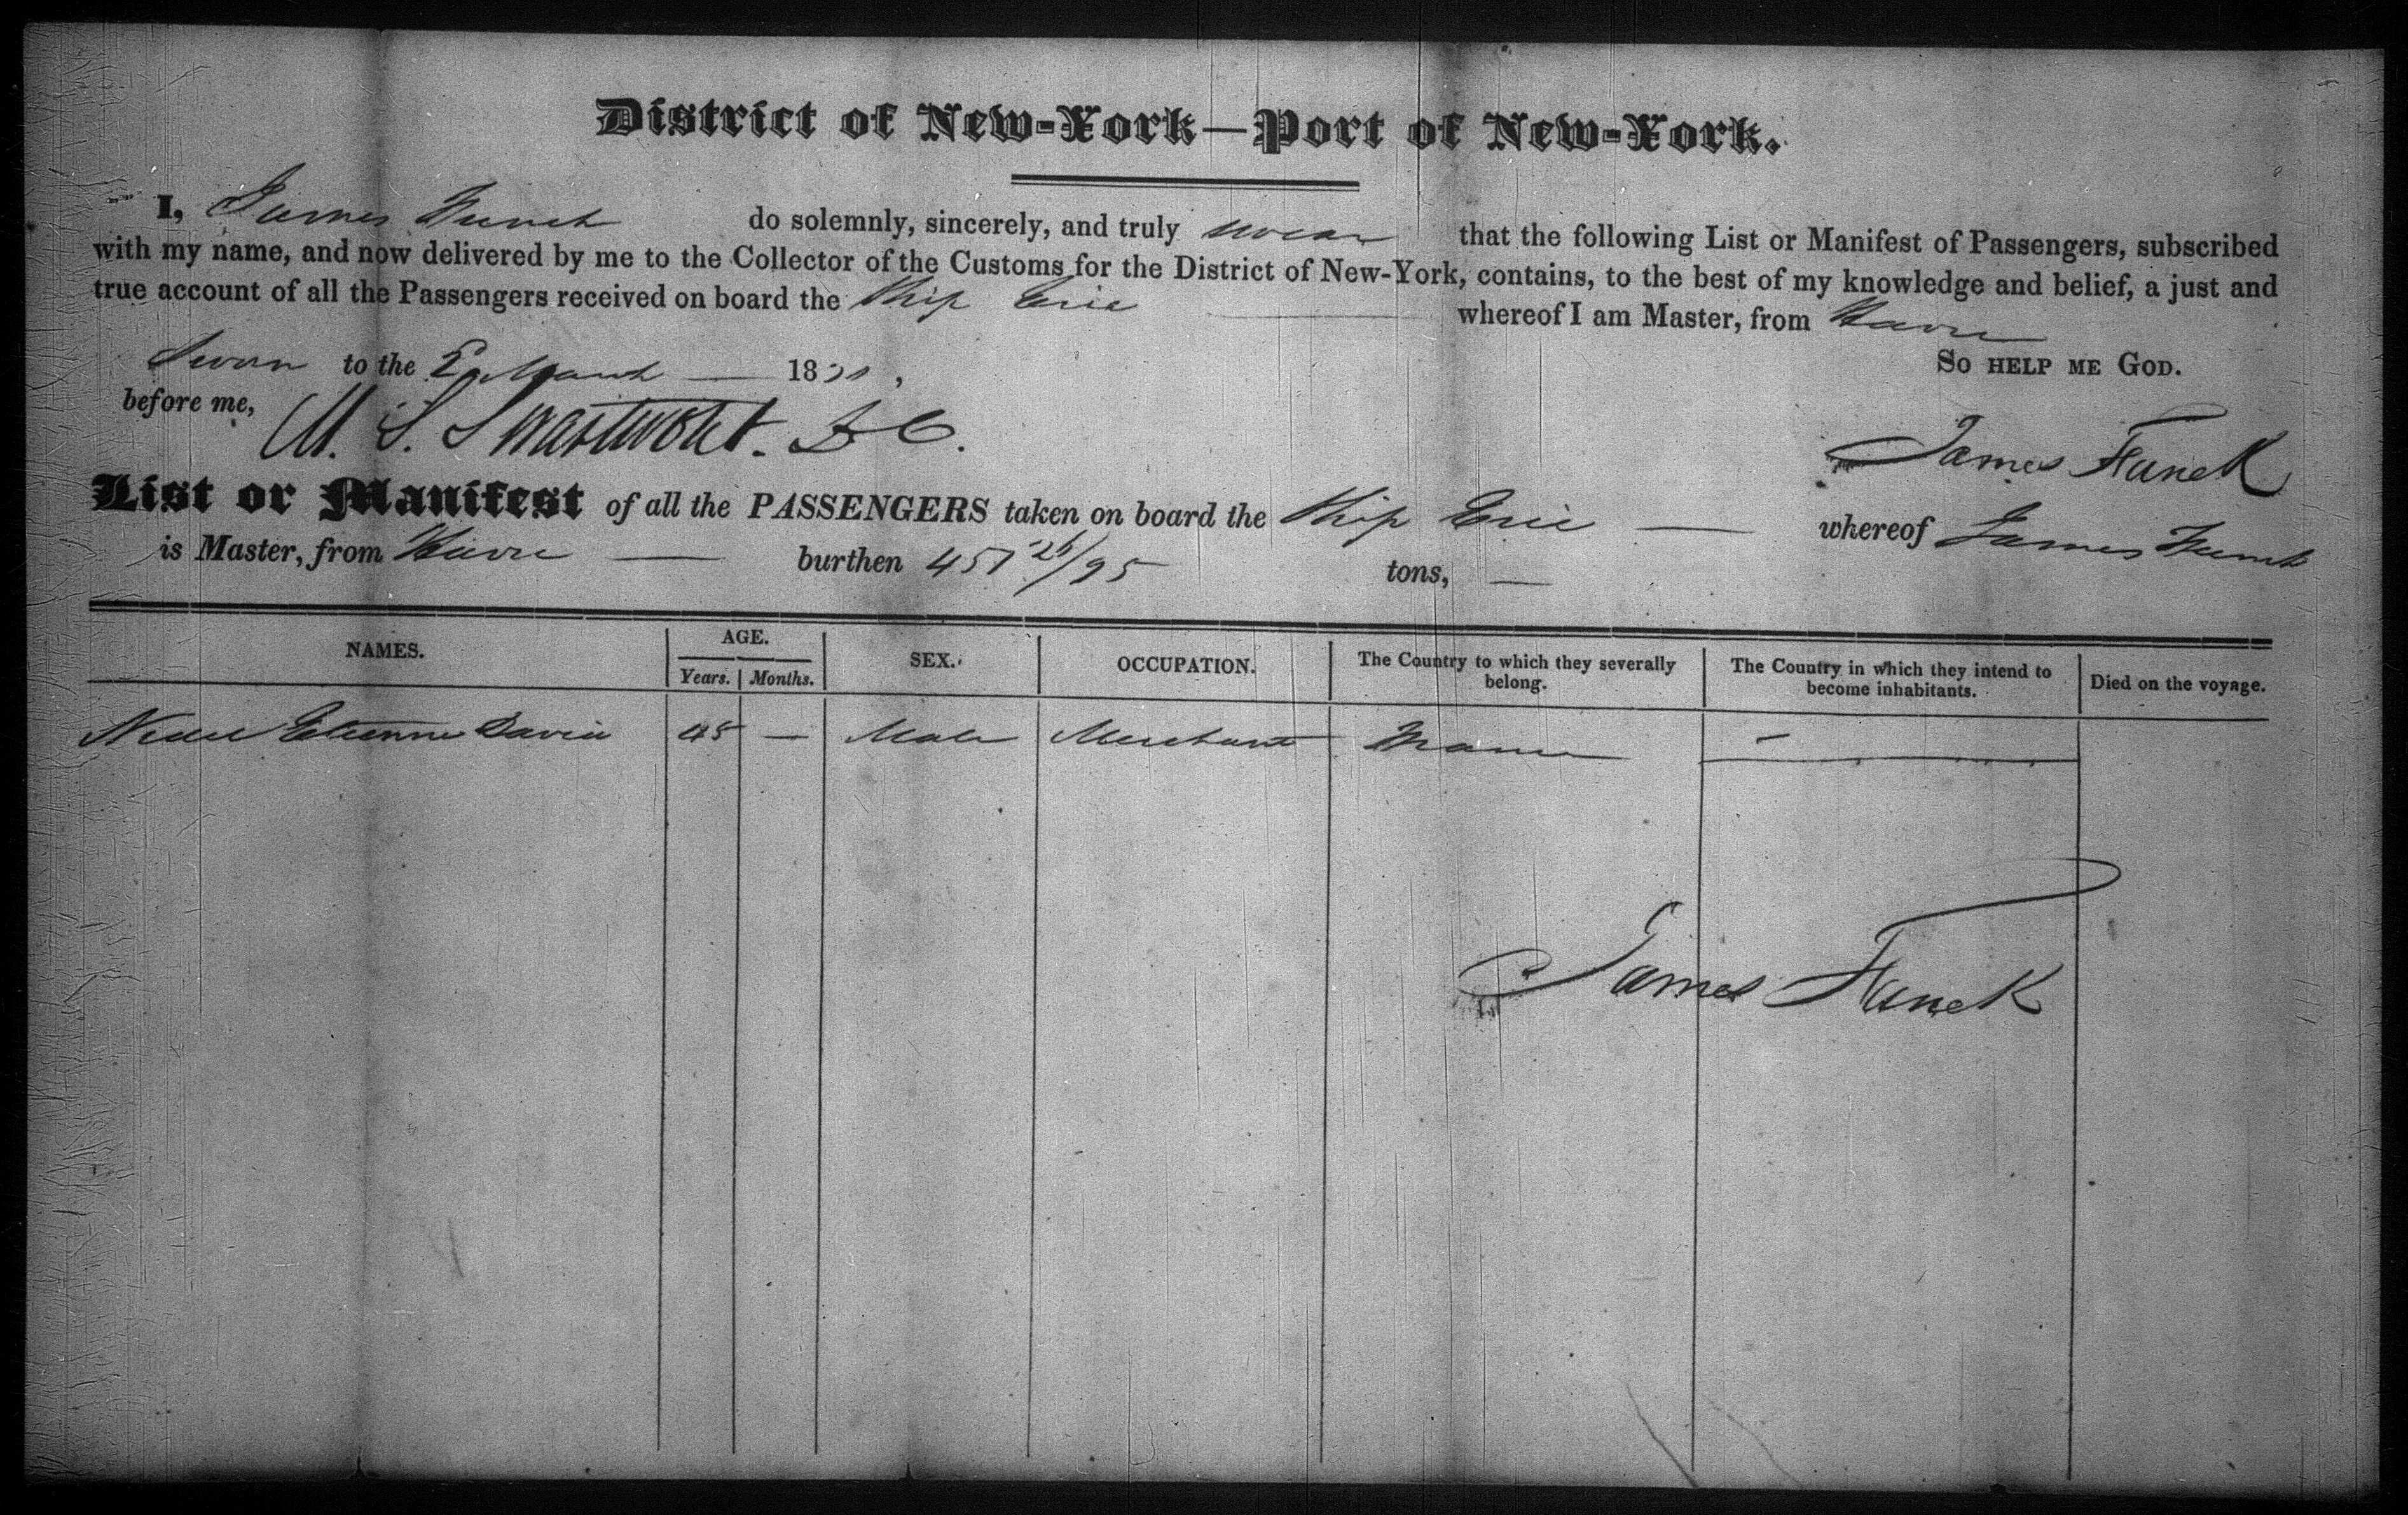 District of New-York—Port of New-York.
I, James Funck do solemnly, sincerely, and truly swear that the following List or Manifest of Passengers, subscribed
with my name, and now delivered by me to the Collector of the Customs for the District of New-York, contains, to the best of my knowledge and belief, a just and
true account of all the Passengers received on board the Ship Erie whereof I am Master, from Havre
So help me God.
Sworn to the March 183 ,
before me,
M. S. Swartwout. D C.
James Funck
List or Manifest of all the PASSENGERS taken on board the Ship Erie — whereof James Funck
is Master, from Havre — burthen 451 26/95 tons, —
NAMES. AGE. SEX. OCCUPATION. The Country to which they severally belong. The Country in which they intend to become inhabitants. Died on the voyage.
Years. Months.
Etienne David 45 — Male Merchant France —
James Funck